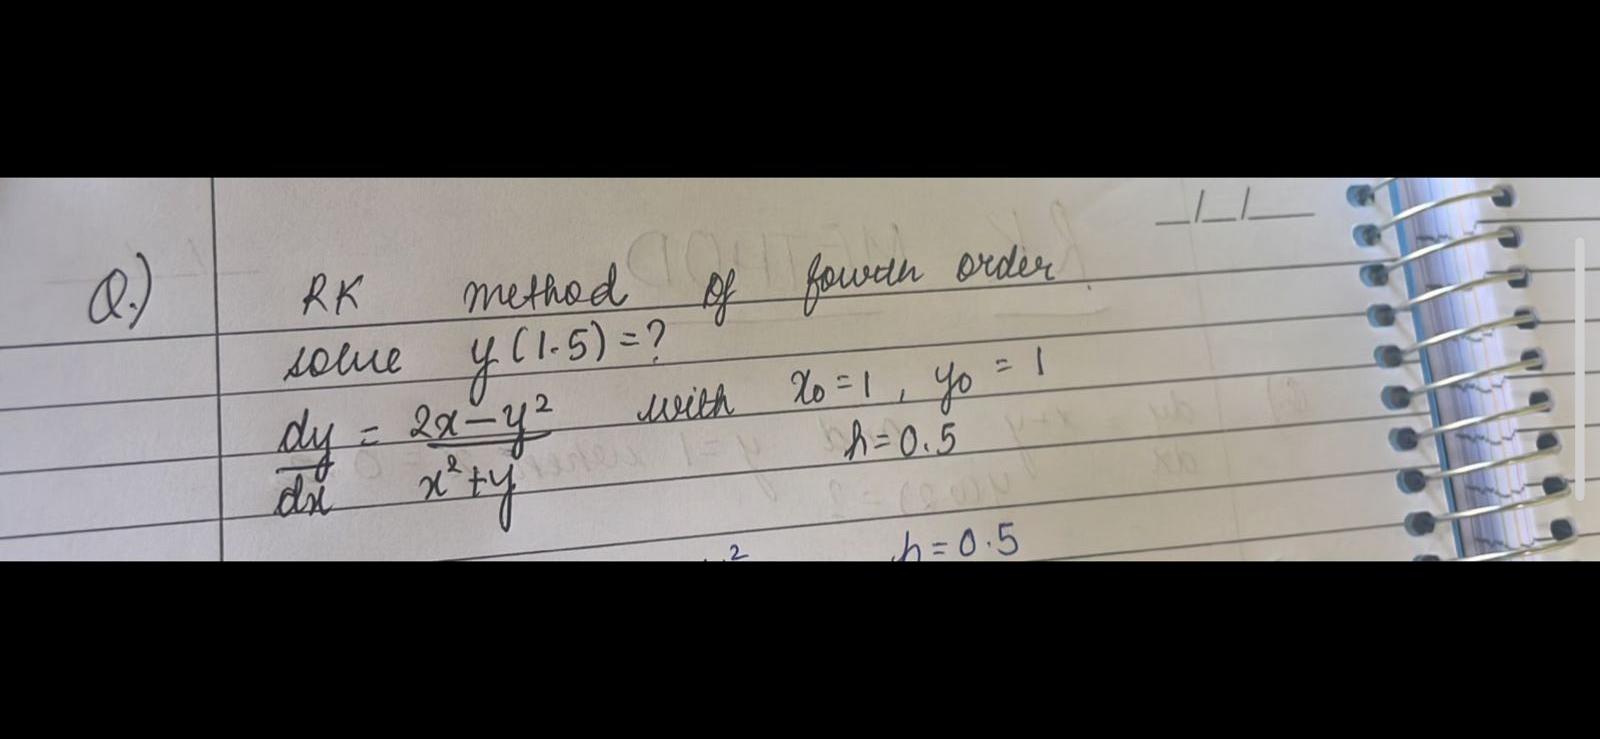 _/_/__
Q.) RK method of fourth order.
solve y(1.5)=?
dy/dx = 2x-y²/x²+y with x₀=1, y₀=1
h=0.5
h=0.5